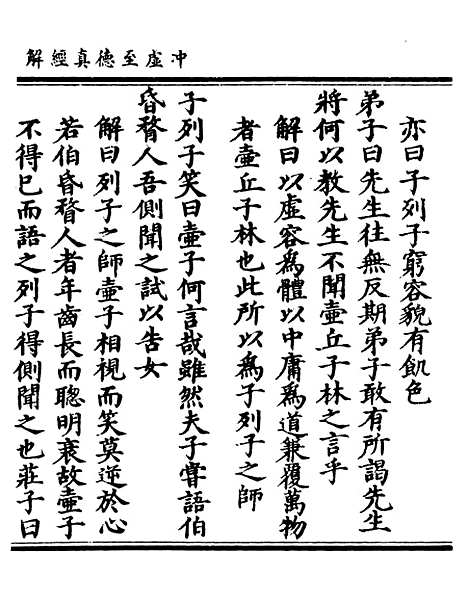 冲虛至德真經解
亦曰子列子窮容貌有飢色
弟子曰先生徃無反期弟子敢有所謁先生
將何以教先生不聞壷丘子林之言乎
解曰以虛容爲體以中庸爲道兼覆萬物
者壷丘子林也此所以爲子列子之師
子列子笑曰壷子何言哉雖然夫子甞語伯
昏瞀人吾側聞之試以告女
解曰列子之師壷子相視而笑莫逆於心
若伯昏瞀人者年齒長而聰明衰故壷子
不得巳而語之列子得側聞之也莊子曰